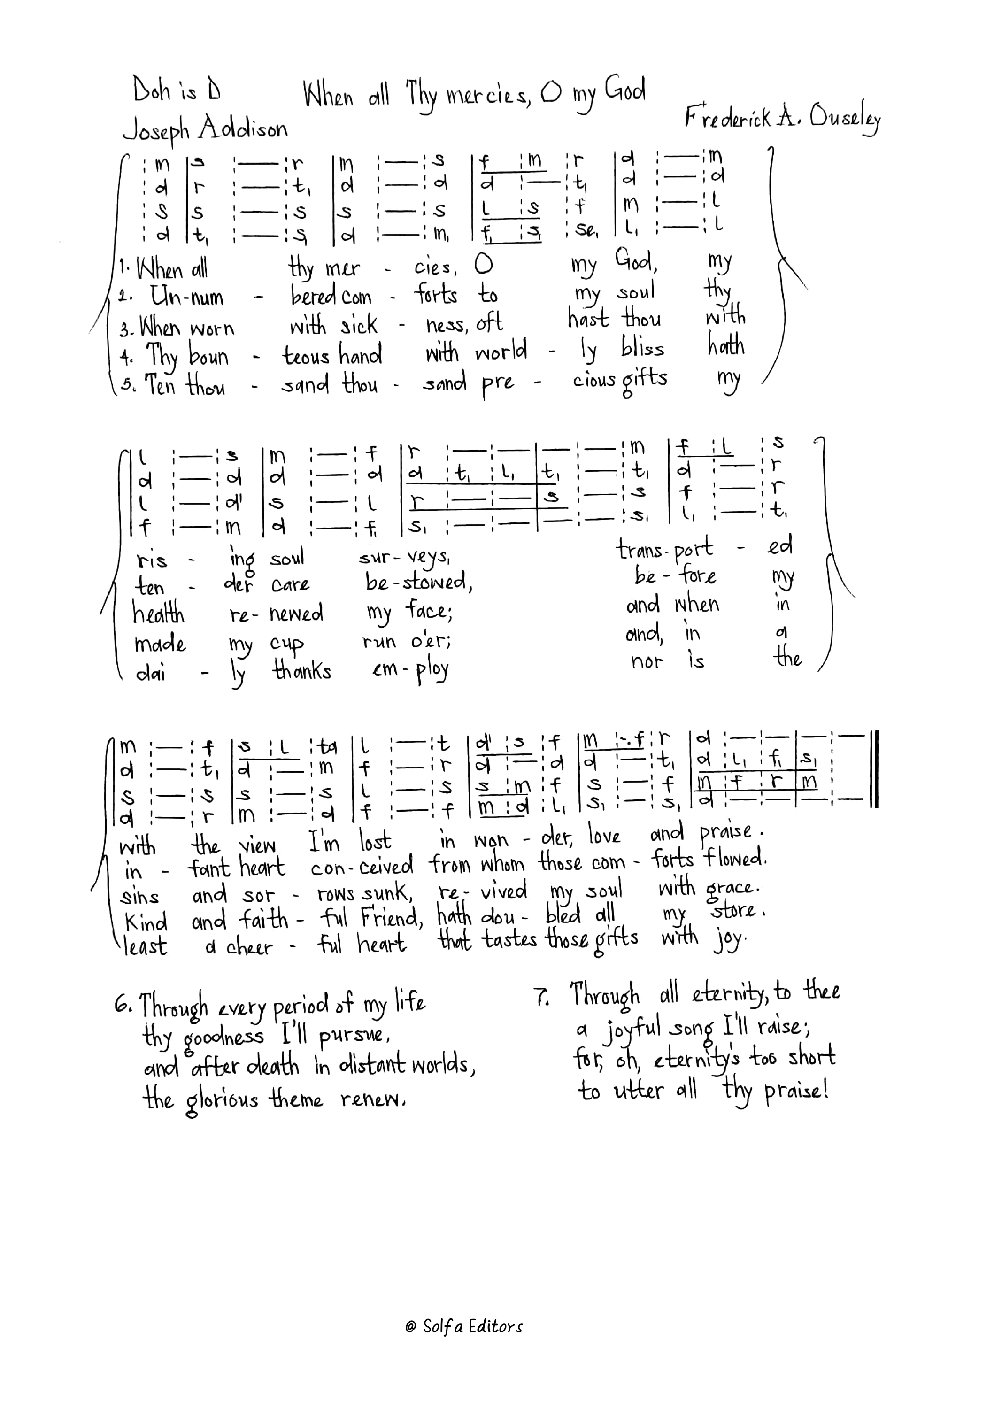 Doh is D
When all Thy mercies, O my God
Joseph Addison
Frederick A. Ouseley
:m |s :—:r |m :—:s |f :m :r |d :—:m
:d |r :—:t₁ |d :—:d |d :—:t₁ |d :—:d
:s |s :—:s |s :—:s |l :s :f |m :—:l
:d |t₁ :—:s₁ |d :—:m₁ |f₁ :s₁ :se₁ |l₁ :—:l
1. When all thy mer - cies, O my God, my
2. Un-num - bered com - forts to my soul thy
3. When worn with sick - ness, oft hast thou with
4. Thy boun - teous hand with world - ly bliss hath
5. Ten thou - sand thou - sand pre - cious gifts my
|l :—:s |m :—:f |r :—:— |— :—:m |f :l :s
|d :—:d |d :—:d |d :t₁ :l₁ |t₁ :—:t₁ |d :—:r
|l :—:d' |s :—:l |r :—:— |s :—:s |f :—:r
|f :—:m |d :—:f₁ |s₁ :—:— |— :—:s₁ |l₁ :—:t₁
ris - ing soul sur-veys, trans-port - ed
ten - der care be-stowed, be-fore my
health re-newed my face; and when in
made my cup run o'er; and, in a
dai - ly thanks em-ploy nor is the
|m :—:f |s :l :ta |l :—:t |d' :s :f |m :-.f:r |d :—:— |— :—
|d :—:t₁ |d :—:m |f :—:r |d :—:d |d :—:t₁ |d :l₁ :f₁ |s₁ :—
|s :—:s |s :—:s |l :—:s |s :m :f |s :—:f |m :f :r |m :—
|d :—:r |m :—:d |f :—:f |m :d :l₁ |s₁ :—:s₁ |d :—:— |— :—
with the view I'm lost in won - der, love and praise.
in - fant heart con-ceived from whom those com - forts flowed.
sins and sor - rows sunk, re-vived my soul with grace.
Kind and faith - ful Friend, hath dou - bled all my store.
least a cheer - ful heart that tastes those gifts with joy.
6. Through every period of my life
thy goodness I'll pursue,
and after death in distant worlds,
the glorious theme renew.
7. Through all eternity, to thee
a joyful song I'll raise;
for, oh, eternity's too short
to utter all thy praise!
@ Solfa Editors